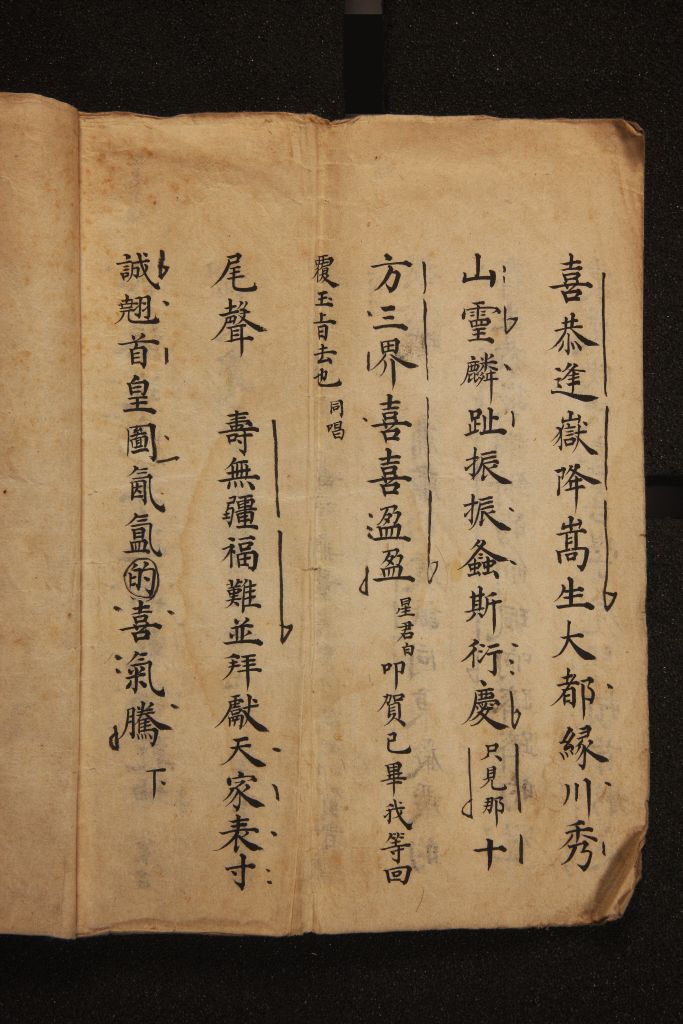 喜恭逢嶽降嵩生大都緣川秀
山靈麟趾振振螽斯衍慶只見那十
方三界喜喜盈盈星君白叩賀已畢我等回
覆玉旨去也同唱
尾聲　壽無疆福難並拜獻天家表寸
誠翹首皇圖氤氳的喜氣騰下